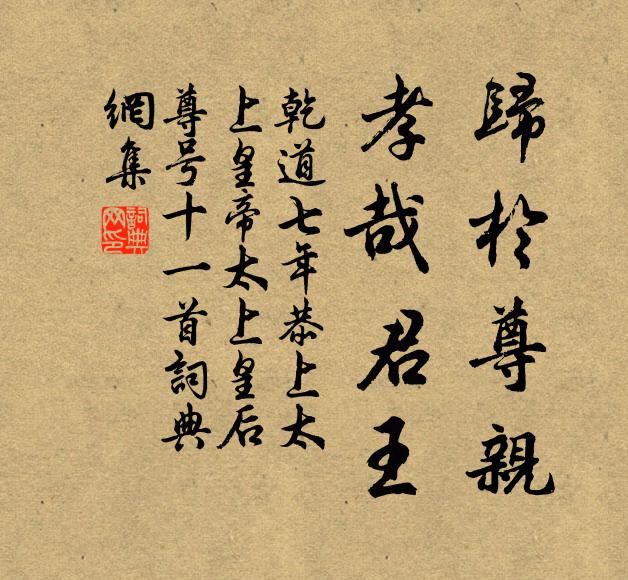 歸於尊親
孝哉君王
乾道七年恭上太
上皇帝太上皇后
尊号十一首詞典
網集
詞典網印